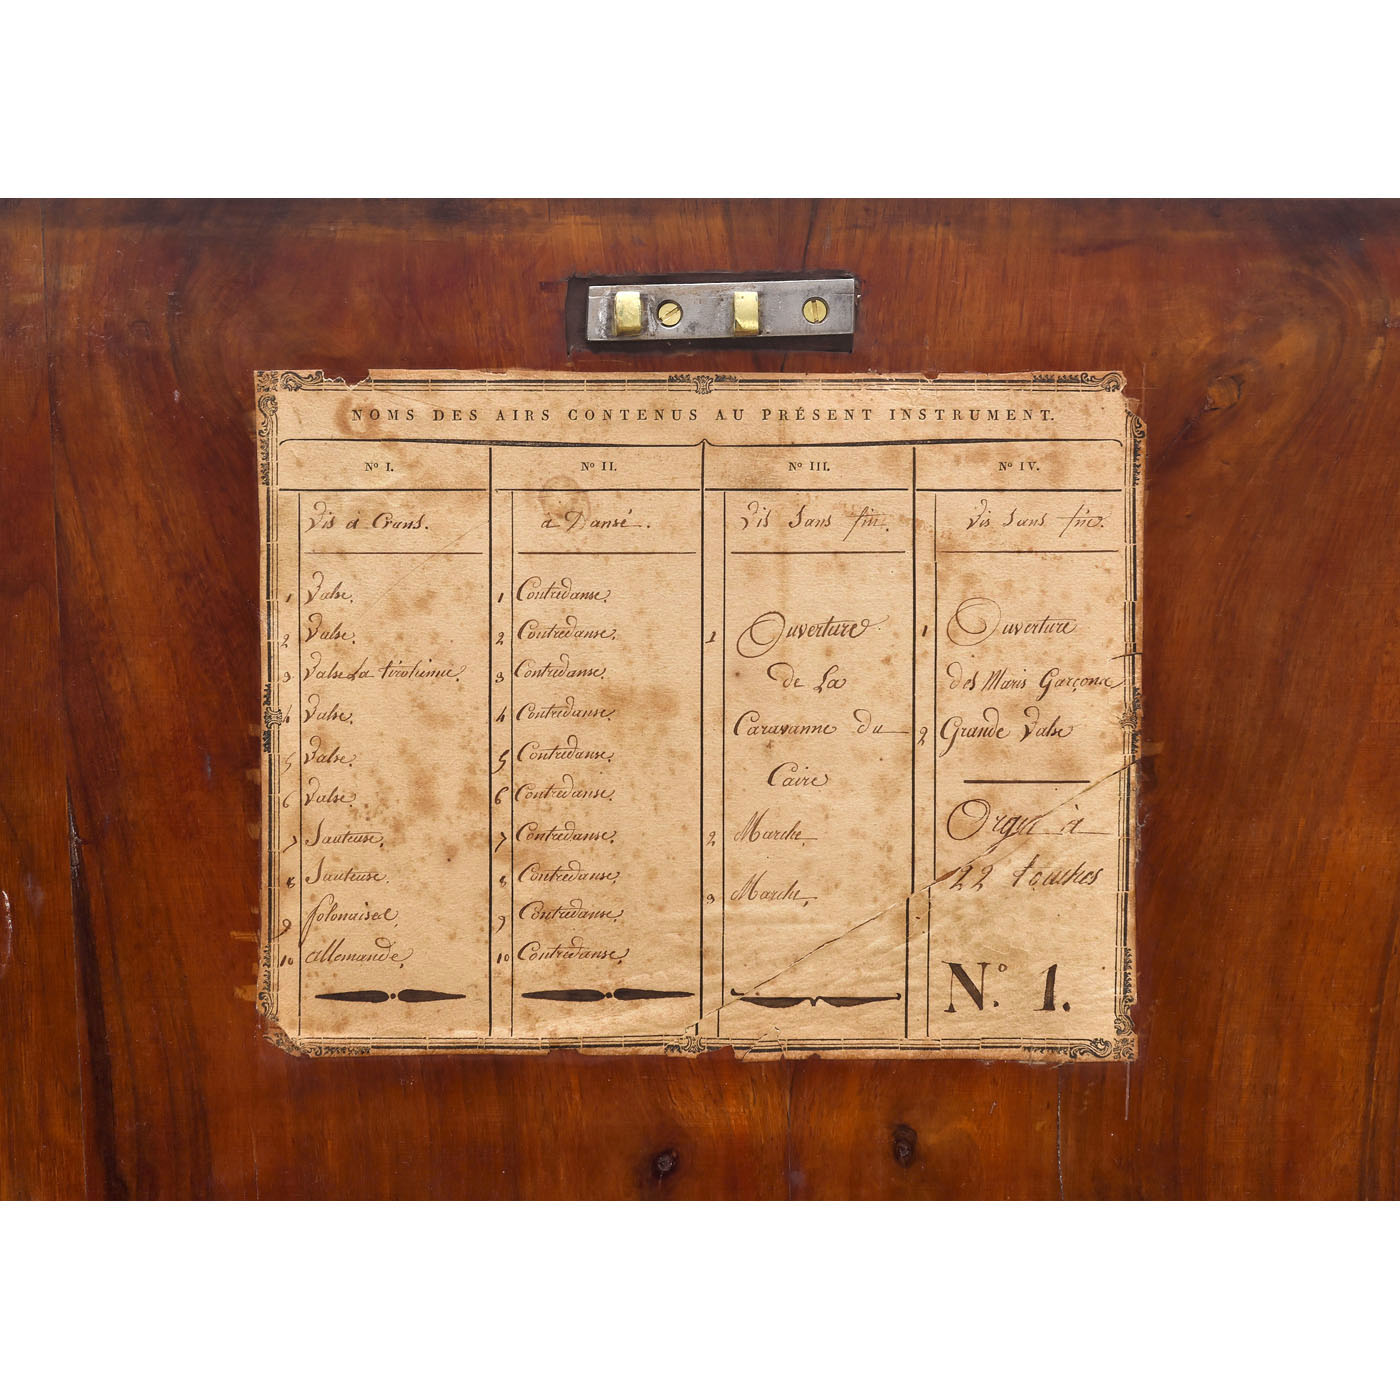 NOMS DES AIRS CONTENUS AU PRÉSENT INSTRUMENT.
Nº I.
Vis à Crans.
1 Valse.
2 Valse.
3 Valse La tirolienne.
4 Valse.
5 Valse.
6 Valse.
7 Sauteuse.
8 Sauteuse.
9 Polonaise
10 allemande.
Nº II.
à Dansé.
1 Contredanse.
2 Contredanse.
3 Contredanse.
4 Contredanse.
5 Contredanse.
6 Contredanse.
7 Contredanse.
8 Contredanse.
9 Contredanse.
10 Contredanse.
Nº III.
Vis Sans fin.
1 Ouverture
de La
Caravanne du
Caire
2 Marche.
3 Marche.
Nº IV.
Vis Sans fin.
1 Ouverture
des Maris Garçons
2 Grande Valse
Orgue à
22 touches
Nº. 1.